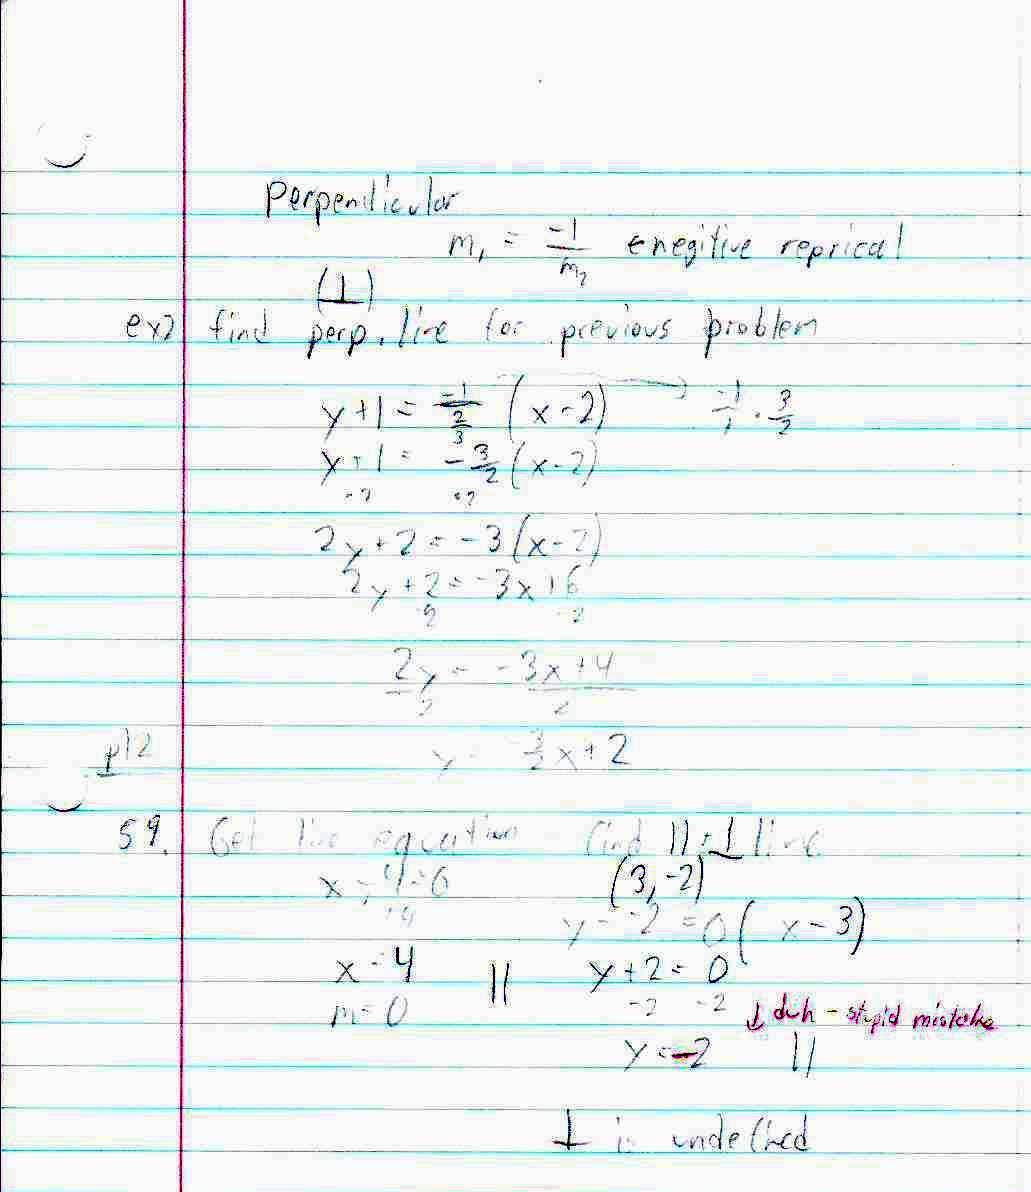 perpendicular
m₁ = -1/m₂ ← negitive reprical
(⊥)
ex) find perp. line for previous problem
y+1 = -1/(2/3) (x-2) → -1/1 · 3/2
y+1 = -3/2 (x-2)
·2 ·2
2y+2 = -3(x-2)
2y+2 = -3x+6
-2 -2
2y = -3x+4
2 2
y = -3/2 x+2
p12
59. Get line equation find || + ⊥ line
x - 4 = 0 (3,-2)
+4 y - -2 = 0( x-3)
x = 4 || y+2 = 0
m=0 -2 -2
↓ duh - stupid mistake
y = -2 ||
⊥ is undefined